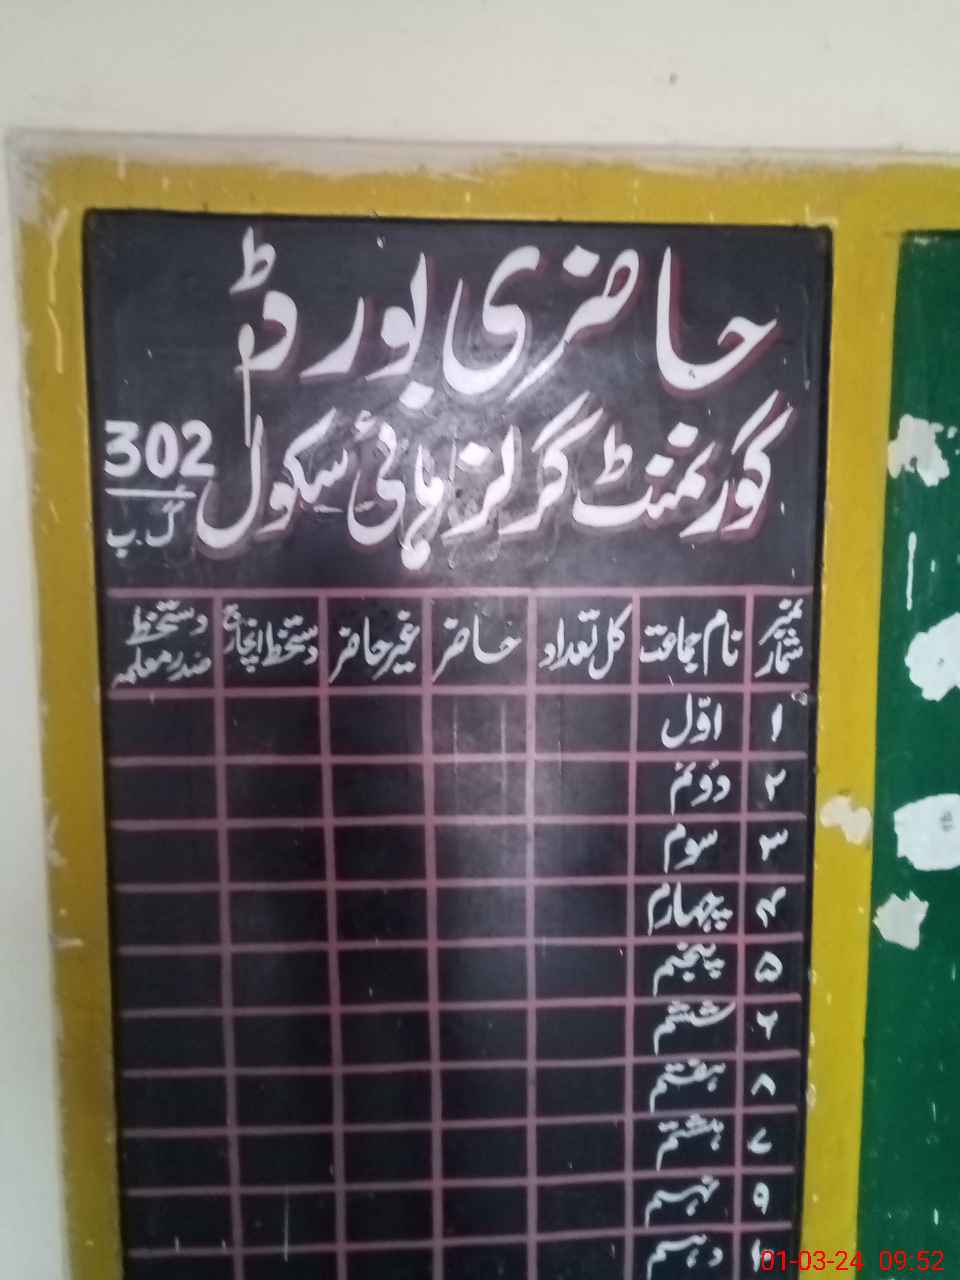 حاضری بورڈ
گورنمنٹ گرلز ہائی سکول 302 گ.ب
نمبر شمار نام جماعت کل تعداد حاضر غیر حاضر دستخط انچارج دستخط صدر معلمہ
۱ اوّل
۲ دوئم
۳ سوم
۴ چہارم
۵ پنجم
۶ ششم
۸ ہفتم
۷ ہشتم
۹ نہم
دہم
01-03-24 09:52